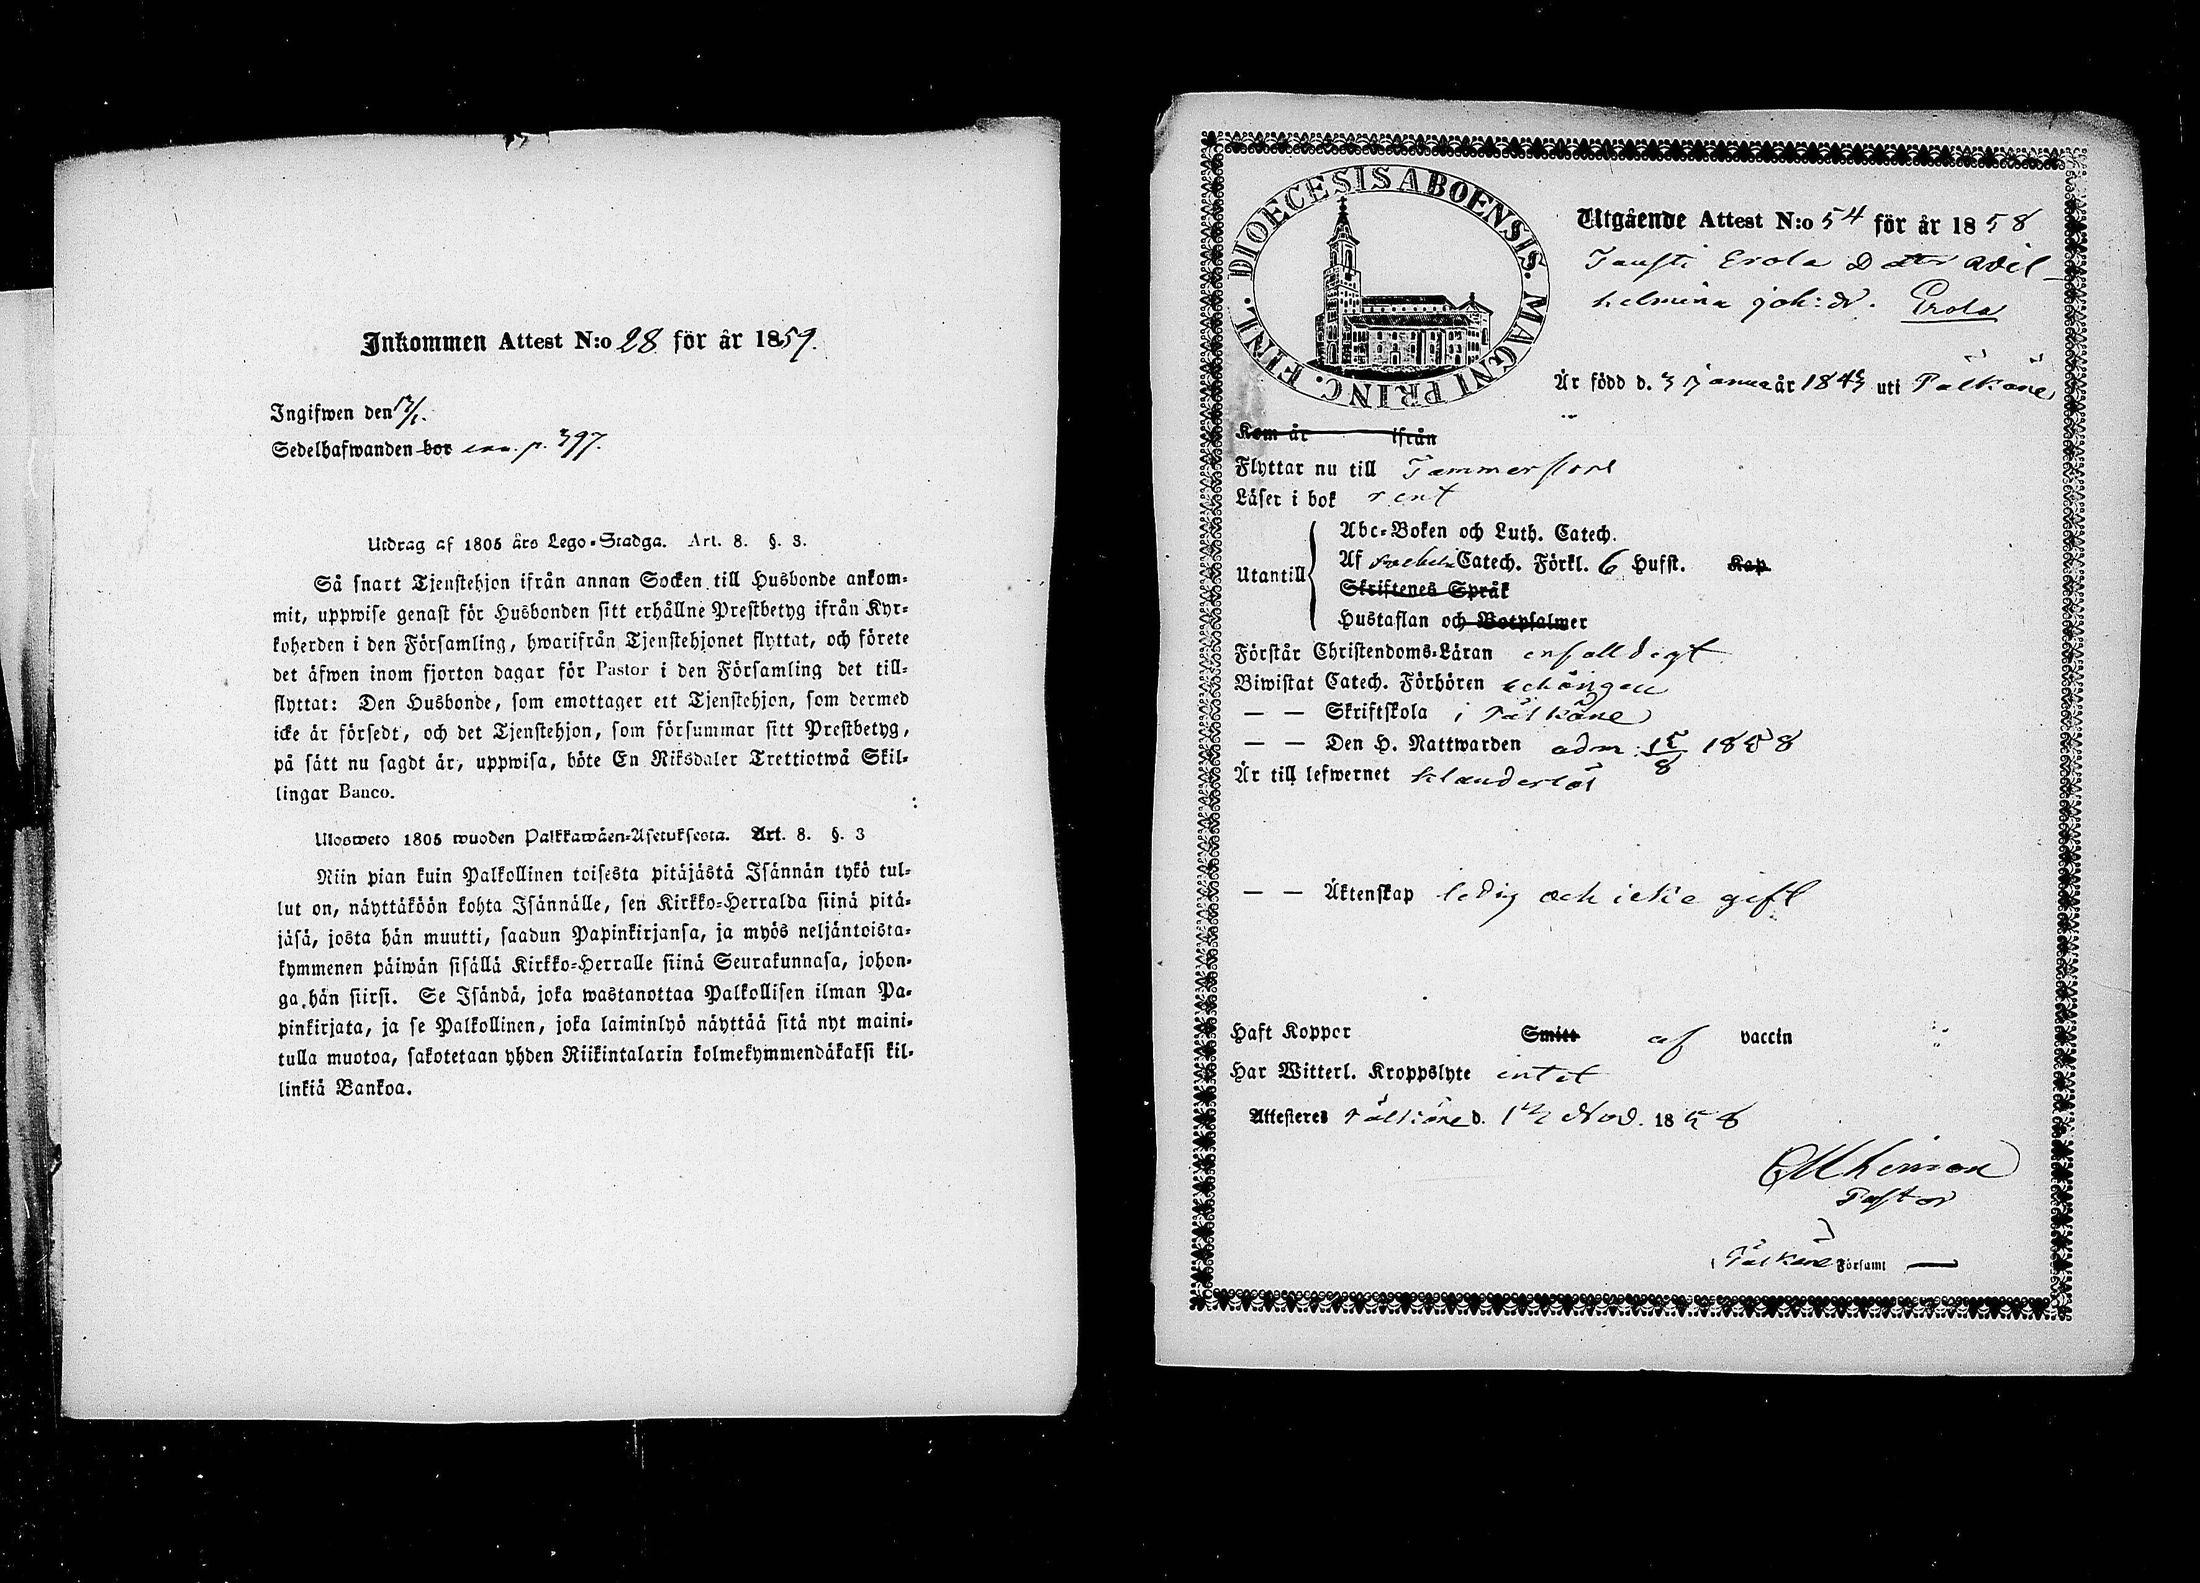 Inkommen Attest N:o 28 för år 1859.
Ingifwen den 13/1.
Sedelhafwanden bor p. 397.
Utdrag af 1805 års Lego-Stadga. Art. 8. §. 3.
Så snart Tjenstehjon ifrån annan Socken till Husbonde ankom-
mit, uppwise genast för Husbonden sitt erhållne Prestbetyg ifrån Kyr-
koherden i den Församling, hwarifrån Tjenstehjonet flyttat, och förete
det äfwen inom fjorton dagar för Pastor i den Församling det till-
flyttat: Den Husbonde, som emottager ett Tjenstehjon, som dermed
icke är försedt, och det Tjenstehjon, som försummar sitt Prestbetyg,
på sätt nu sagdt är, uppwisa, böte En Riksdaler Trettiotwå Skil-
lingar Banco.
Ulosweto 1805 wuoden Palkkawäen-Asetuksesta. Art. 8. §. 3
Niin pian kuin Palkollinen toisesta pitäjästä Isännän tykö tul-
lut on, näyttäköön kohta Isännälle, sen Kirkko-Herralda siinä pitä-
jäsä, josta hän muutti, saadun Papinkirjansa, ja myös neljäntoista-
kymmenen päiwän sisällä Kirkko-Herralle siinä Seurakunnasa, johon-
ga hän siirsi. Se Isändä, joka wastanottaa Palkollisen ilman Pa-
pinkirjata, ja se Palkollinen, joka laiminlyö näyttää sitä nyt maini-
tulla muotoa, sakotetaan yhden Riikintalarin kolmekymmendäkaksi kil-
linkiä Bankoa.
DIOECESIS ABOENSIS. MAGNI PRINC. FINL.
Utgående Attest N:o 54 för år 1858
Tausti Erola Dottr Wil-
helmina Joh: dr. Erola
Är född d. 3 Januar år 1843 uti Pälkäne
Kom år ifrån
Flyttar nu till Tammerfors
Läser i bok rent
Abc-Boken och Luth. Catech.
Utantill Af Svebel. Catech. Förkl. 6 Hufst. Kap
Skriftenes Språk
Hustaflan och Botpsalmer
Förstår Christendoms-Läran enfalldigt
Biwistat Catech. Förhören
— — Skriftskola i Pälkäne
— — Den H. Nattwarden adm. 15/8 1858
Är till lefwernet klanderlös
— — Äktenskap ledig och icke gift
Haft Koppor Smitt af vaccin
Har Witterl. Kroppslyte intet
Attesteres Pälkäne d. 12 Nov. 1858
Pastor
i Pälkäne Församl